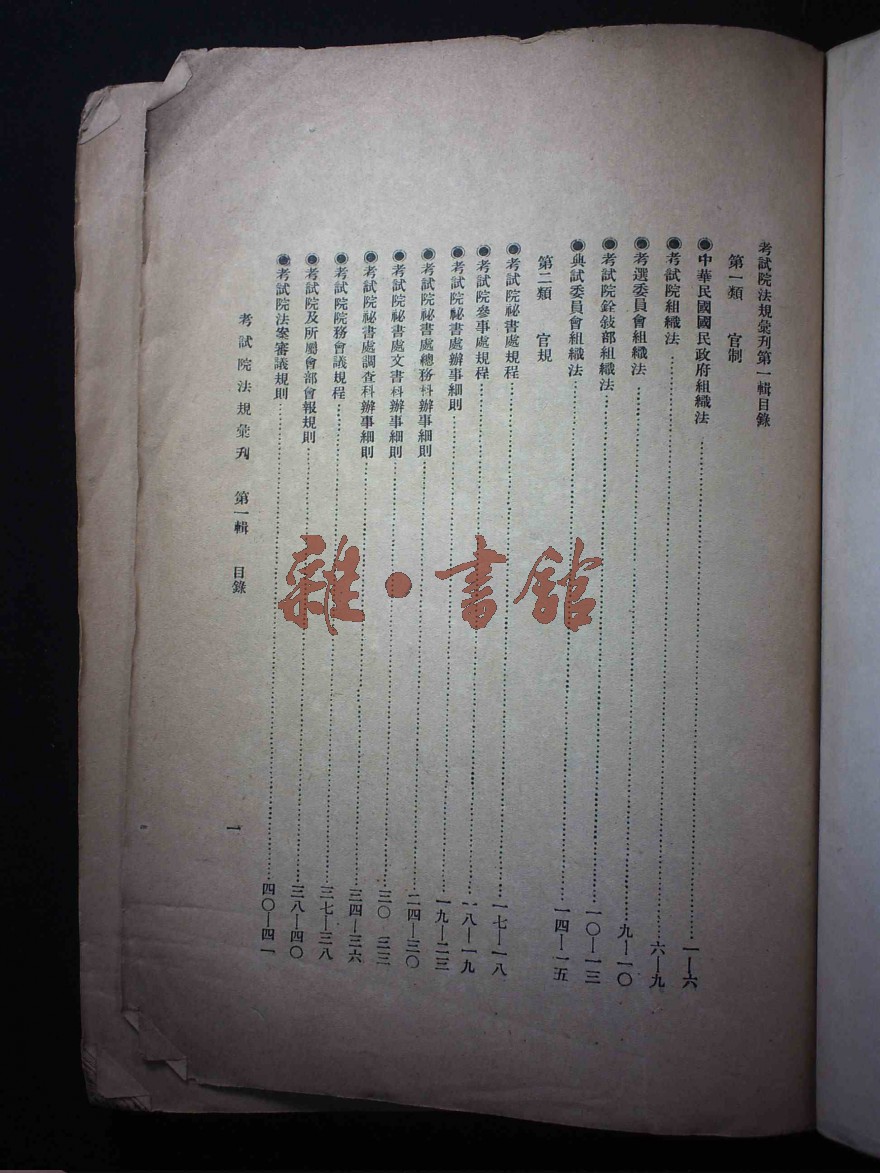 考試院法規彙刊第一輯目錄
第一類 官制
◉中華民國國民政府組織法……一—六
◉考試院組織法……六—九
◉考選委員會組織法……九—一〇
◉考試院銓敍部組織法……一〇—一三
◉典試委員會組織法……一四—一五
第二類 官規
◉考試院祕書處規程……一七—一八
◉考試院參事處規程……一八—一九
◉考試院祕書處辦事細則……一九—二三
◉考試院祕書處總務科辦事細則……二四—三〇
◉考試院祕書處文書科辦事細則……三〇 三三
◉考試院祕書處調查科辦事細則……三四—三六
◉考試院院務會議規程……三七—三八
◉考試院及所屬會部會報規則……三八—四〇
◉考試院法案審議規則……四〇—四一
考試院法規彙刊 第一輯 目錄 一
雜·書館